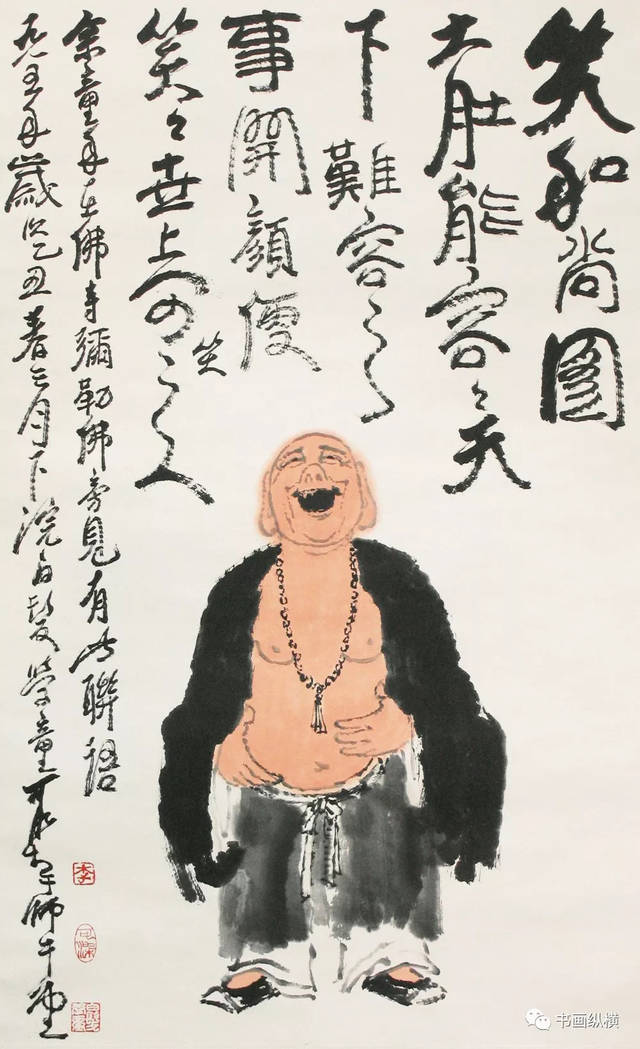 笑和尚圖
大肚能容々天
下難容之
事開顏便
笑々世上可笑之人
余童年在佛寺彌勒佛旁見有此聯語
一九八五年歲次乙丑春三月下浣白髮學童可染于師牛堂
李
可染
书画纵横